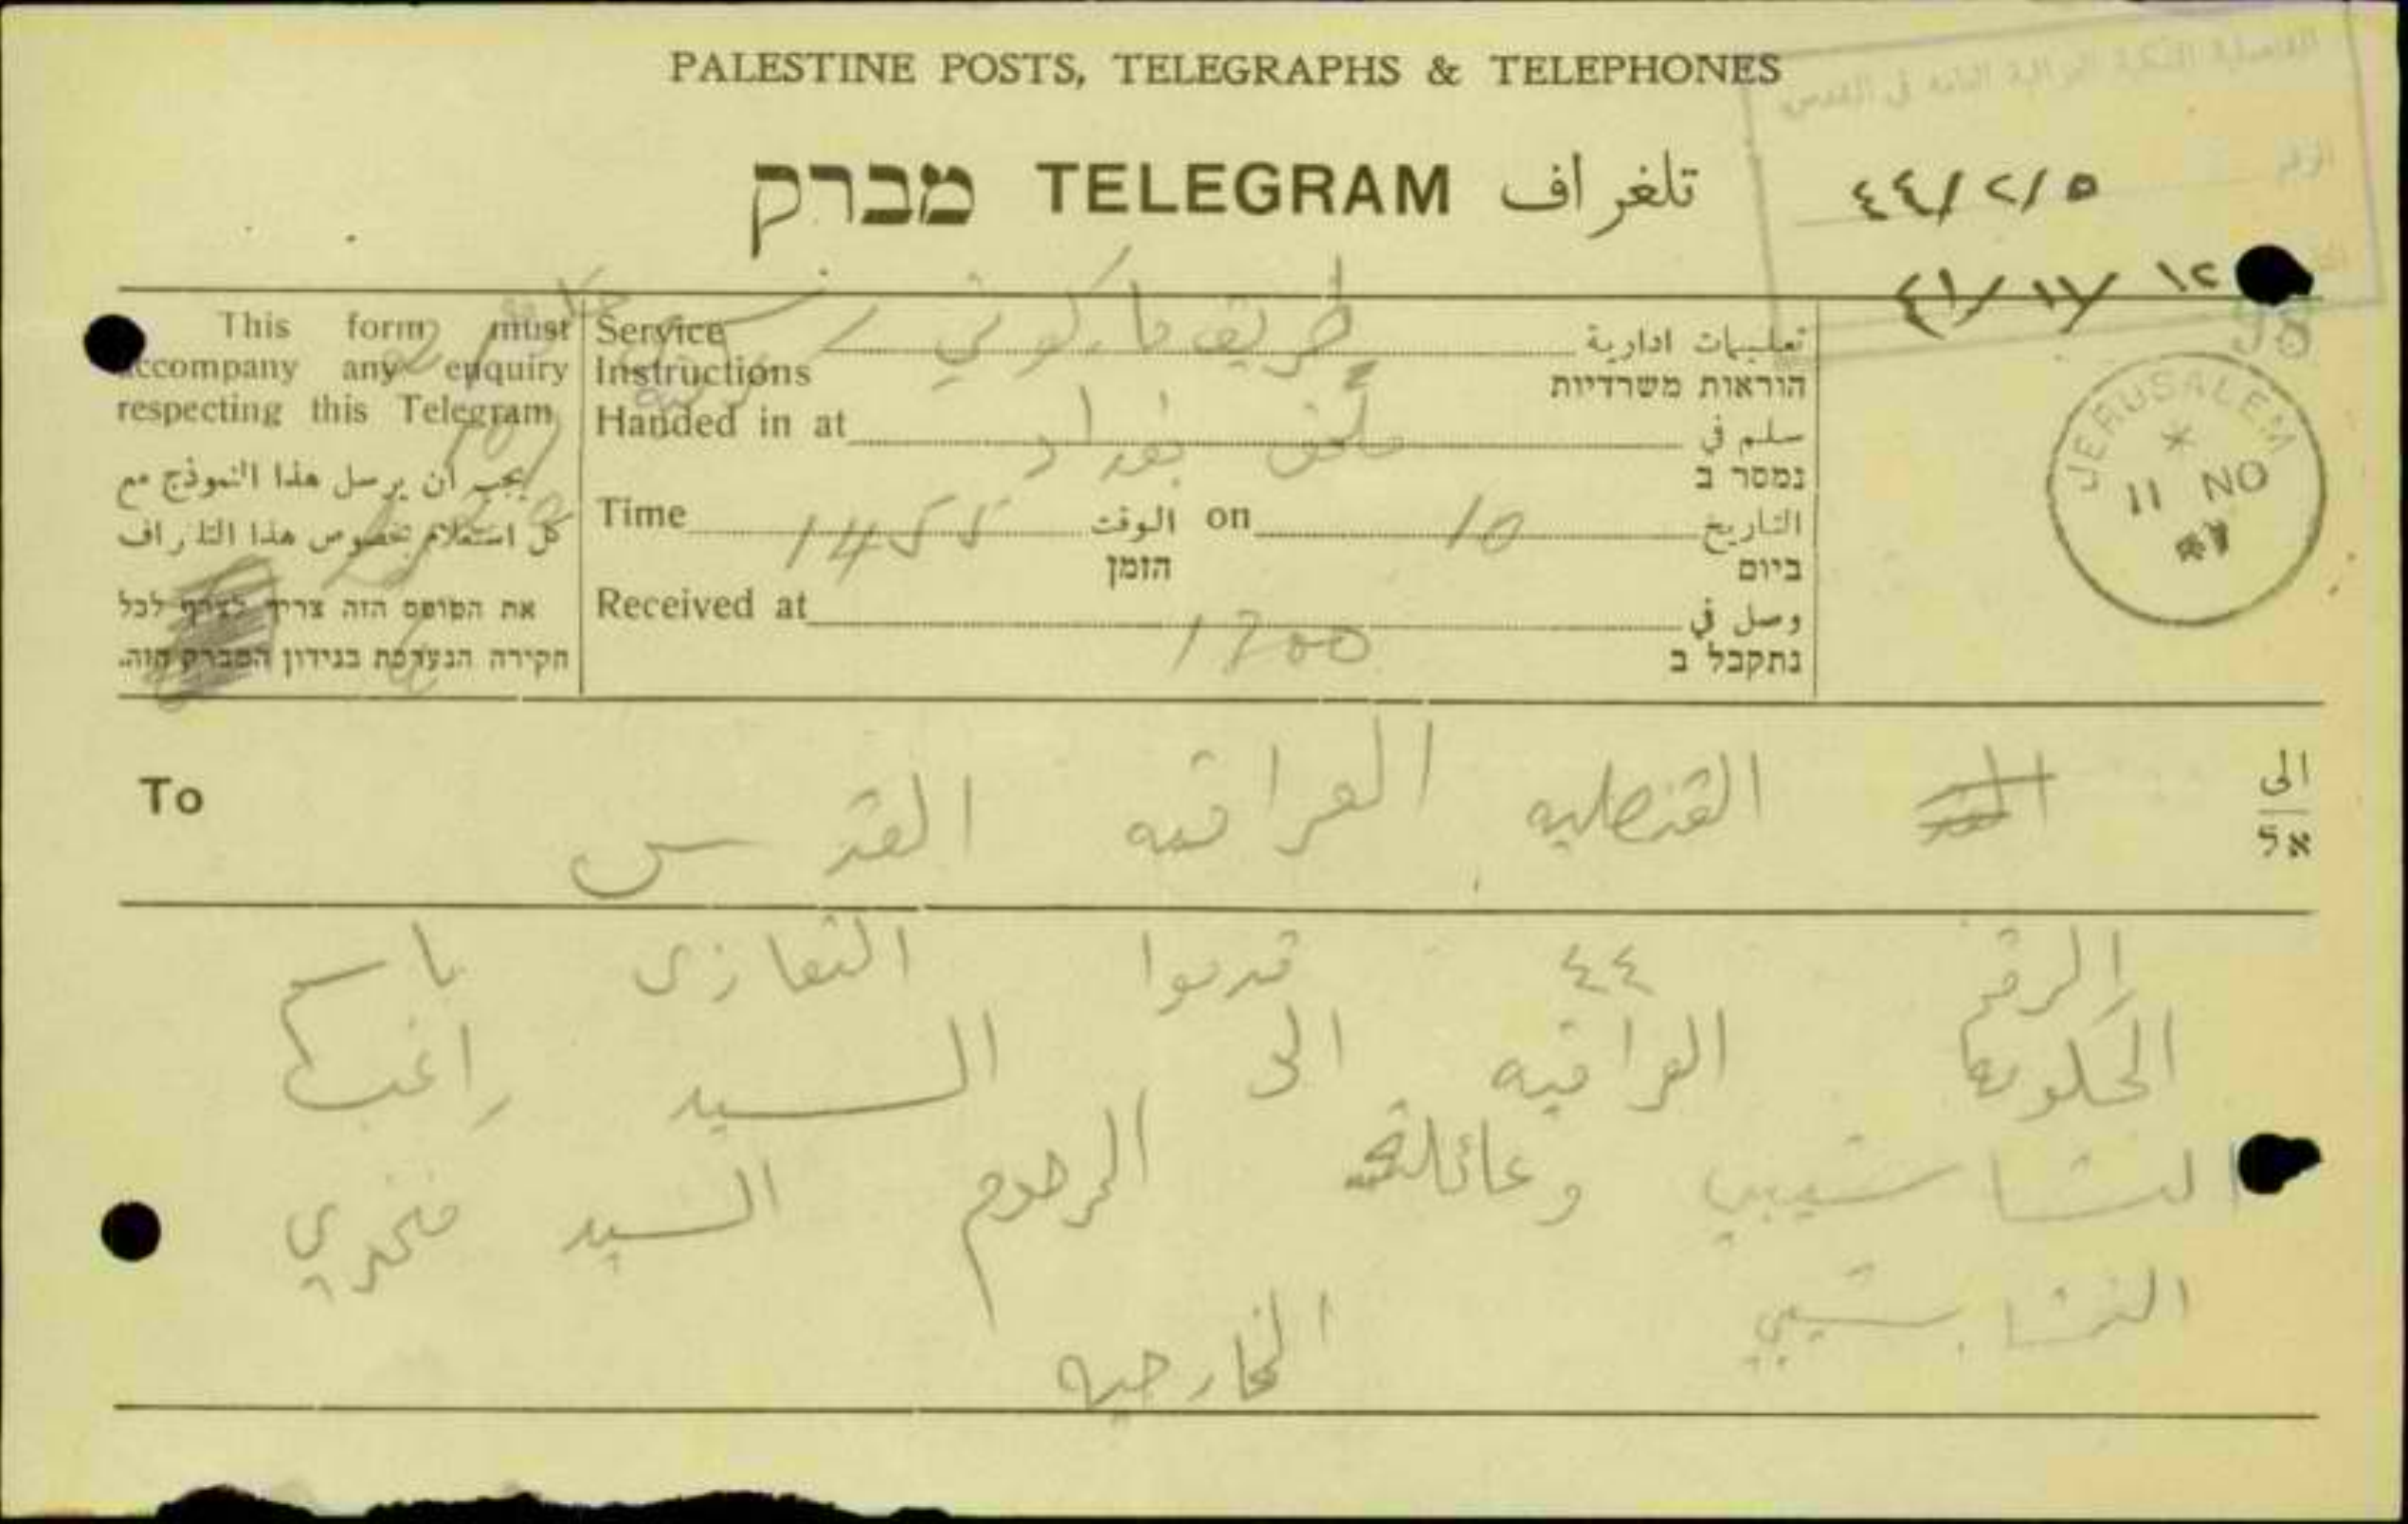 PALESTINE POSTS, TELEGRAPHS & TELEPHONES
מברק TELEGRAM تلغراف
٤٤/٢/٥
This form must
accompany any enquiry
respecting this Telegram
يجب ان يرسل هذا النموذج مع
كل استعلام بخصوص هذا التلغراف
את הטופס הזה צריך לצרף לכל
חקירה הנערכת בנידון המברק הזה.
Service
Instructions
طريق ماركوني
تعليمات ادارية
הוראות משרדיות
Handed in at بغداد سلم في
נמסר ב
Time 1455 الوقت on 10 التاريخ
הזמן ביום
Received at 1700 وصل في
נתקבל ב
JERUSALEM
11 NO
To القنصليه العراقيه القدس الى
אל
الرقم ٤٤ قدموا التعازى باسم
الحكومة العراقيه الى السيد راغب
النشاشيبي وعائلة المرحوم السيد فخري
النشاشيبي
الخارجيه